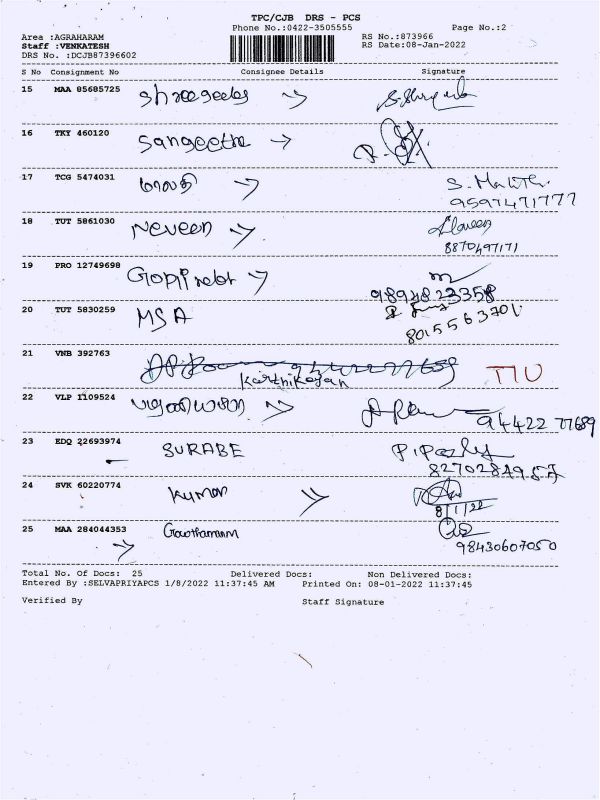 TPC/CJB DRS - PCS
Phone No.:0422-3505555 Page No.:2
Area :AGRAHARAM RS No.:873966
Staff :VENKATESH RS Date:08-Jan-2022
DRS No. :DCJB87396602
S No Consignment No Consignee Details Signature
15 MAA 85685725
16 TKY 460120 Sangeetha
17 TCG 5474031 மாலதி S. Malathi
9597471777
18 TUT 5861030 Neveen
8870497171
19 PRO 12749698
9894823358
20 TUT 5830259 MSA
8015563701
21 VNB 392763 Karthikeyan
22 VLP 1109524 94422 77689
23 EDQ 22693974 SURABE
24 SVK 60220774 Kumar
8/1/22
25 MAA 284044353
98430607050
Total No. Of Docs: 25 Delivered Docs: Non Delivered Docs:
Entered By :SELVAPRIYAPCS 1/8/2022 11:37:45 AM Printed On: 08-01-2022 11:37:45
Verified By Staff Signature